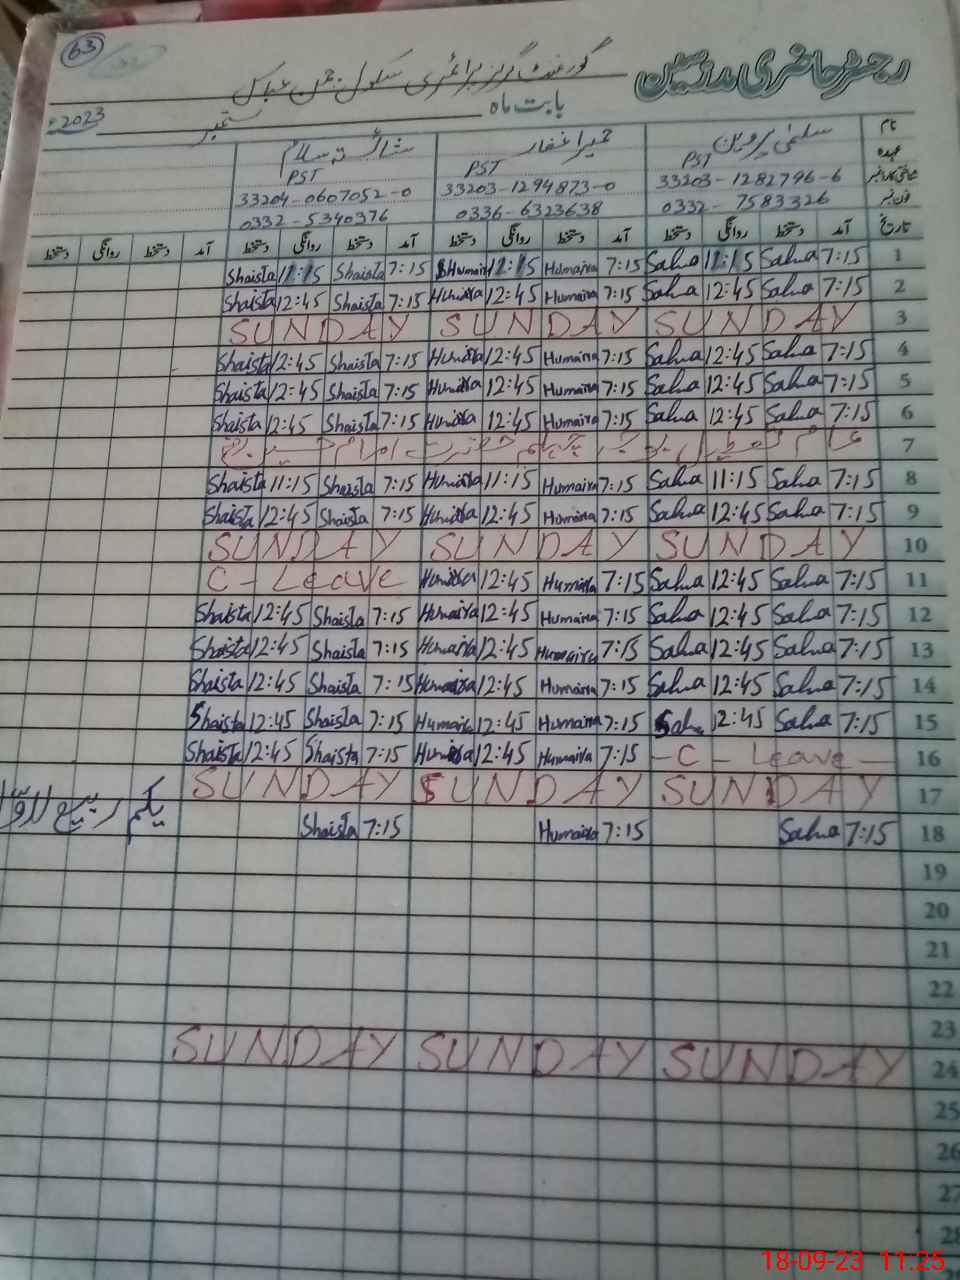 63
رجسٹر حاضری مدرسین
گورنمنٹ گرلز پرائمری سکول عباس
بابت ماہ ستمبر 2023ء
نام سلمیٰ پروین حمیرا غفار شائستہ سلام
عہدہ PST PST PST
33203-1282796-6 33203-1294873-0 33204-0607052-0
فون نمبر 0332-7583326 0336-6323638 0332-5340376
تاریخ آمد دستخط روانگی دستخط آمد دستخط روانگی دستخط آمد دستخط روانگی دستخط آمد دستخط روانگی دستخط
1 7:15 Salma 11:15 Salma 7:15 Humaira 11:15 Humaira 7:15 Shaista 11:15 Shaista
2 7:15 Salma 12:45 Salma 7:15 Humaira 12:45 Humaira 7:15 Shaista 12:45 Shaista
3 SUNDAY SUNDAY SUNDAY
4 7:15 Salma 12:45 Salma 7:15 Humaira 12:45 Humaira 7:15 Shaista 12:45 Shaista
5 7:15 Salma 12:45 Salma 7:15 Humaira 12:45 Humaira 7:15 Shaista 12:45 Shaista
6 7:15 Salma 12:45 Salma 7:15 Humaira 12:45 Humaira 7:15 Shaista 12:45 Shaista
7 عام تعطیل چہلم حضرت امام حسین
8 7:15 Salma 11:15 Salma 7:15 Humaira 11:15 Humaira 7:15 Shaista 11:15 Shaista
9 7:15 Salma 12:45 Salma 7:15 Humaira 12:45 Humaira 7:15 Shaista 12:45 Shaista
10 SUNDAY SUNDAY SUNDAY
11 7:15 Salma 12:45 Salma 7:15 Humaira 12:45 Humaira C-Leave
12 7:15 Salma 12:45 Salma 7:15 Humaira 12:45 Humaira 7:15 Shaista 12:45 Shaista
13 7:15 Salma 12:45 Salma 7:15 Humaira 12:45 Humaira 7:15 Shaista 12:45 Shaista
14 7:15 Salma 12:45 Salma 7:15 Humaira 12:45 Humaira 7:15 Shaista 12:45 Shaista
15 7:15 Salma 12:45 Salma 7:15 Humaira 12:45 Humaira 7:15 Shaista 12:45 Shaista
16 -C-Leave- 7:15 Humaira 12:45 Humaira 7:15 Shaista 12:45 Shaista
17 SUNDAY SUNDAY SUNDAY
18 7:15 Salma 7:15 Humaira 7:15 Shaista یکم ربیع الاول
19
20
21
22
23
24 SUNDAY SUNDAY SUNDAY
25
26
27
28
18-09-23 11:25